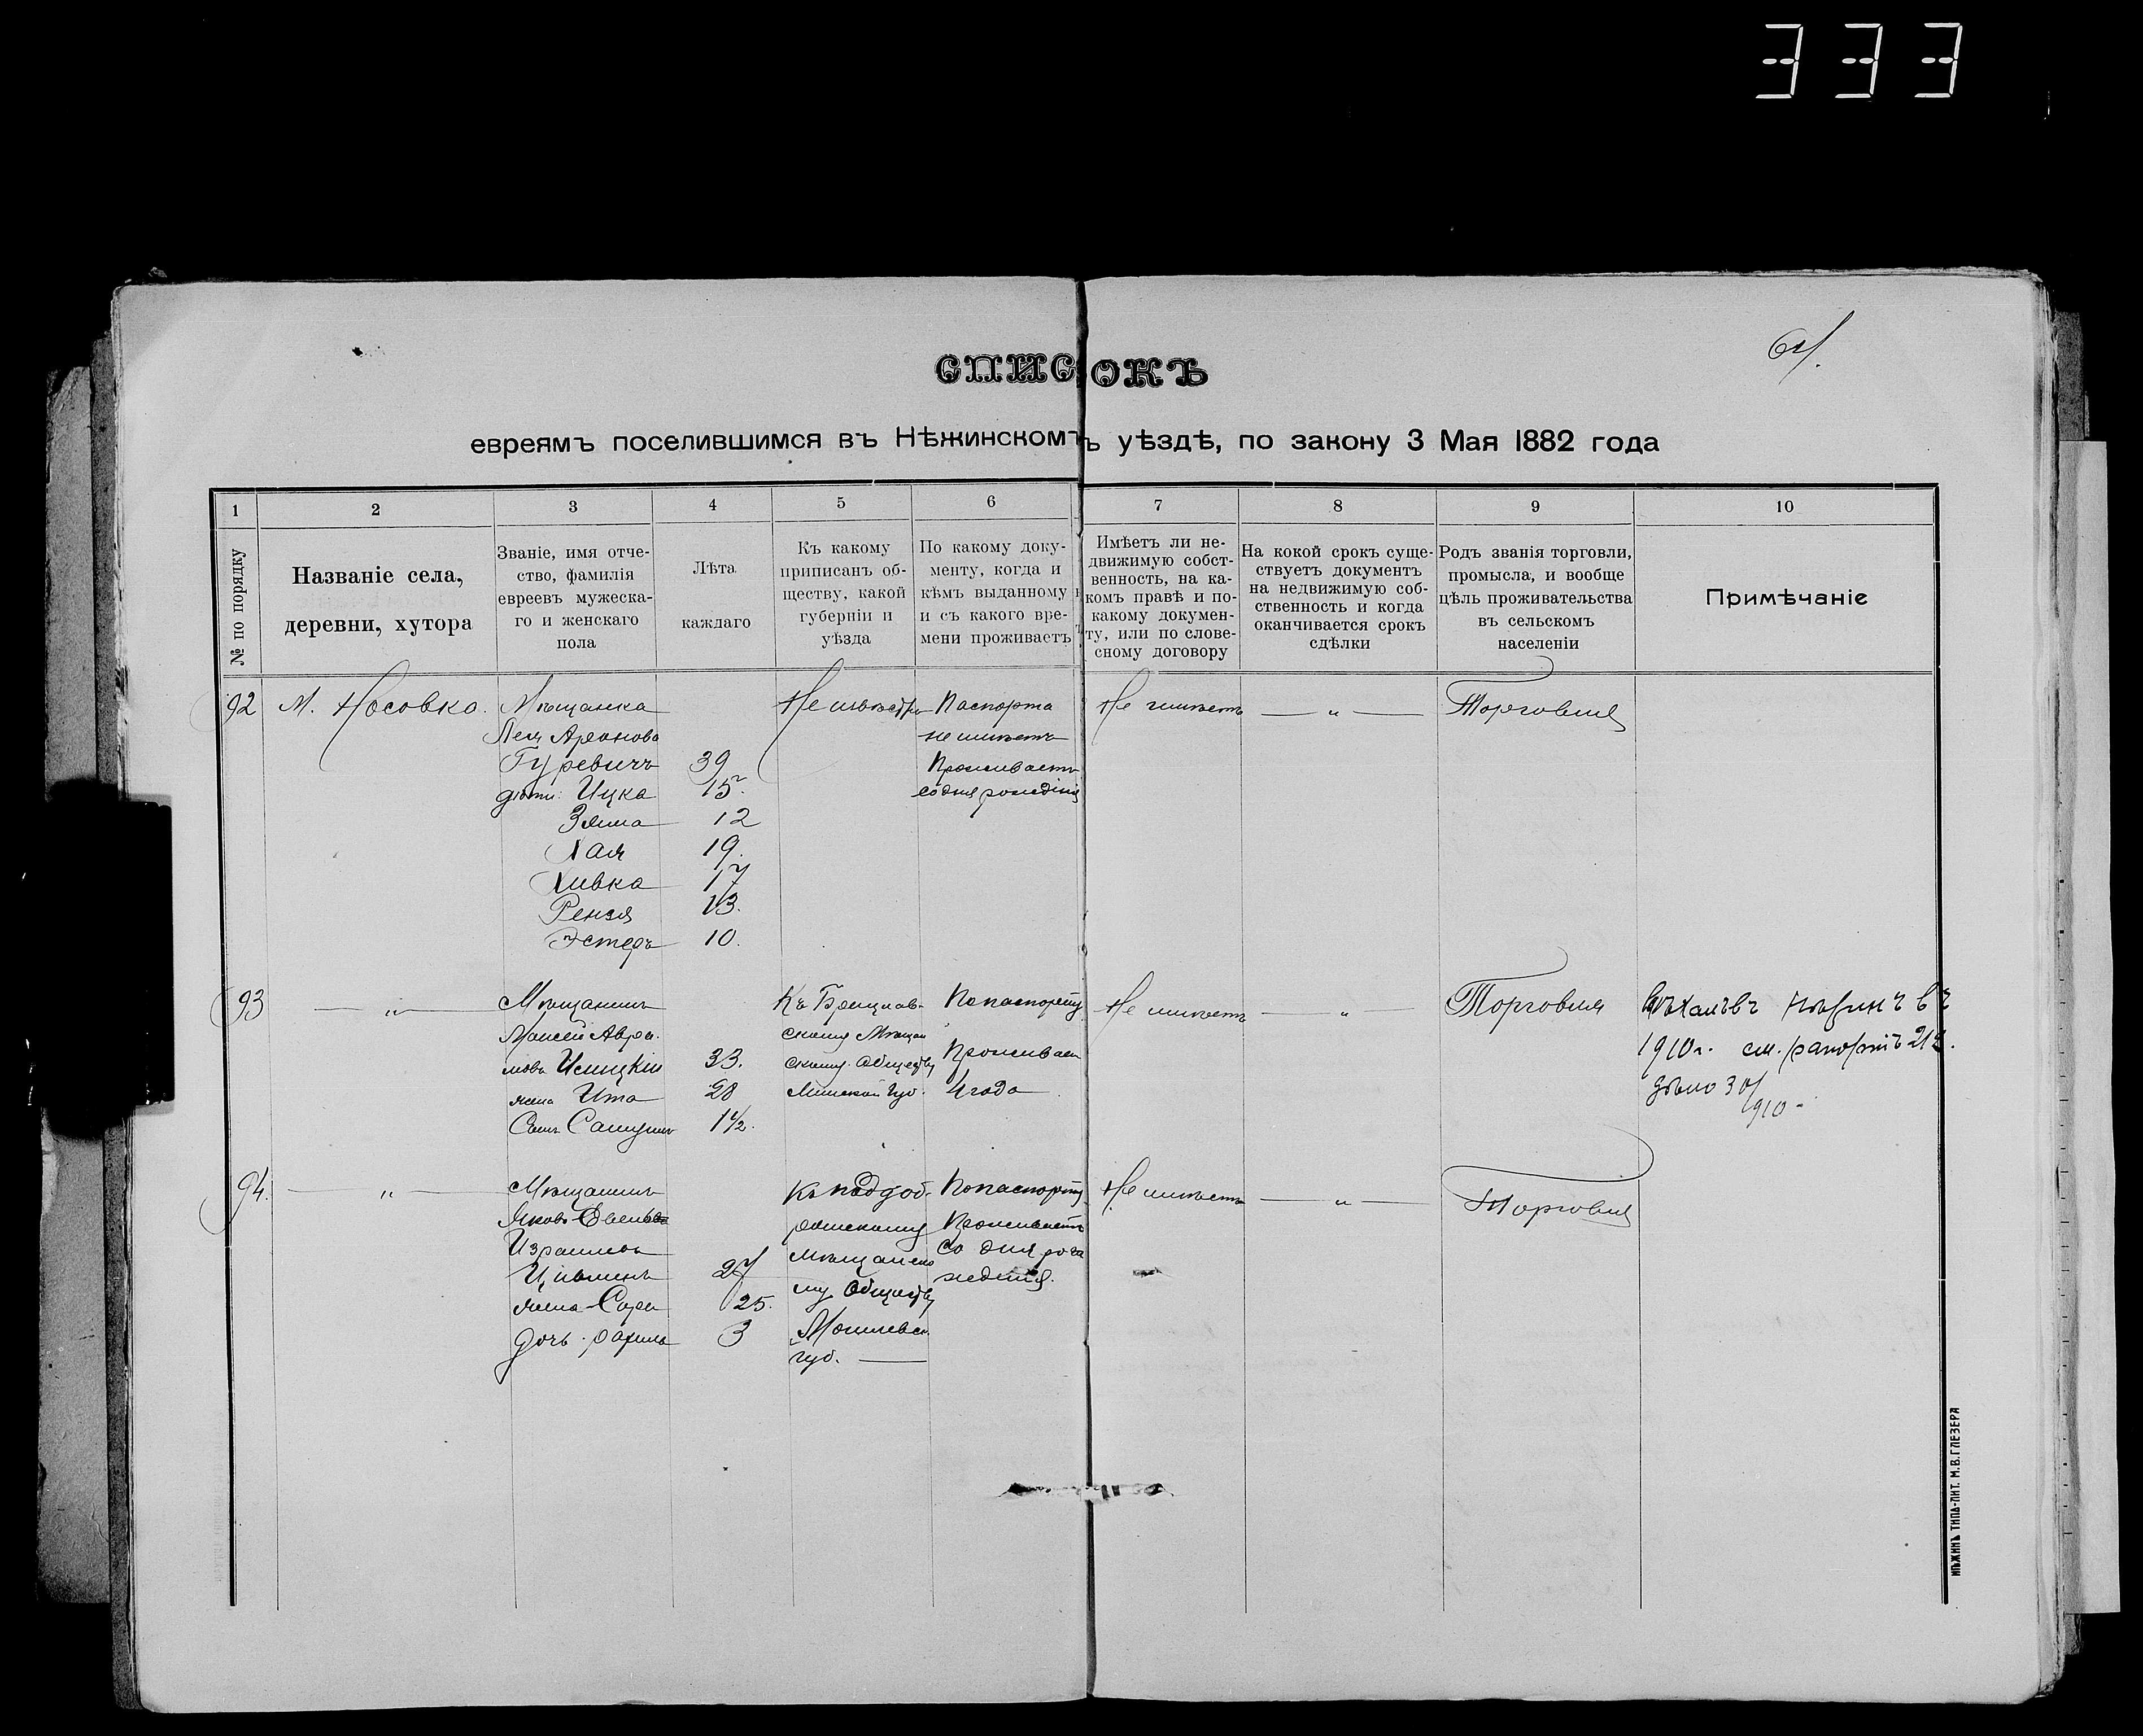 333
64.
СПИСОКЪ
евреямъ поселившимся въ Нѣжинскомъ уѣздѣ, по закону 3 Мая 1882 года
1
2
3
4
5
6
7
8
9
10
№ по порядку
Названіе села,
деревни, хутора
Званіе, имя отче-
ство, фамилія
евреевъ мужеска-
го и женскаго
пола
Лѣта
каждаго
Къ какому
приписанъ об-
ществу, какой
губерніи и
уѣзда
По какому доку-
менту, когда и
кѣмъ выданному
и съ какого вре-
мени проживаетъ
Имѣетъ ли не-
движимую собст-
венность, на ка-
комъ правѣ и по-
какому докумен-
ту, или по слове-
сному договору
На кокой срокъ суще-
ствуетъ документъ
на недвижимую соб-
ственность и когда
оканчивается срокъ
сдѣлки
Родъ званія торговли,
промысла, и вообще
цѣль проживательства
въ сельскомъ
населеніи
Примѣчаніе
92
М. Носовка
Мѣщанка
Аронова
Гуревичъ 39
дѣти: Ицка 15.
Зяма 12
Хая 19.
Ривка 17
13.
Эстеръ 10.
Не извѣстно
Паспорта
не имѣетъ
Проживаетъ
со дня рожденія
Не имѣетъ
— „ —
Торговля
93
— „ —
Мѣщанинъ
33.
жена Ита 28
Сынъ 1½.
скому Мѣщан
скому Обществу
Минской губ.
По паспорту
Проживает
4 года
Не имѣетъ
— „ —
Торговля
въ
1910 г. см. рапортъ
дѣло
910
94.
— „ —
Мѣщанинъ
Яковъ
Израилевъ
27
жена Сора 25.
дочь Рахиль 3
Мѣщанско
му Обществу
Могилевск.
губ. —
По паспорту
Проживаетъ
со дня ро
жденія.
Не имѣетъ
— „ —
Торговля
НѢЖИНЪ ТИПО-ЛИТ. М.В.ГЛЕЗЕРА